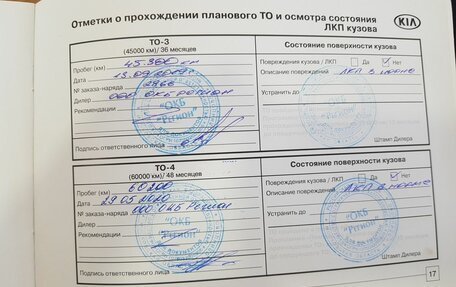 Отметки о прохождении планового ТО и осмотра состояния
ЛКП кузова
KIA
ТО-3
(45000 км)/ 36 месяцев
Пробег (км) 45.360 км
Дата
№ заказ-наряда
Дилер ООО ОКБ Регион
Рекомендации
"ОКБ
"Регион"
Подпись ответственного лица
Состояние поверхности кузова
Повреждения кузова / ЛКП Да Нет
Описание повреждений ЛКП в норме
Устранить до
"ОКБ
"Регион"
Штамп Дилера
ТО-4
(60000 км)/ 48 месяцев
Пробег (км) 60200
Дата 29 05 2020
№ заказ-наряда ООО ОКБ Регион
Дилер
Рекомендации
"ОКБ
"Регион"
Подпись ответственного лица
Состояние поверхности кузова
Повреждения кузова / ЛКП Да Нет
Описание повреждений ЛКП в норме
Устранить до
"ОКБ
"Регион"
Штамп Дилера
17